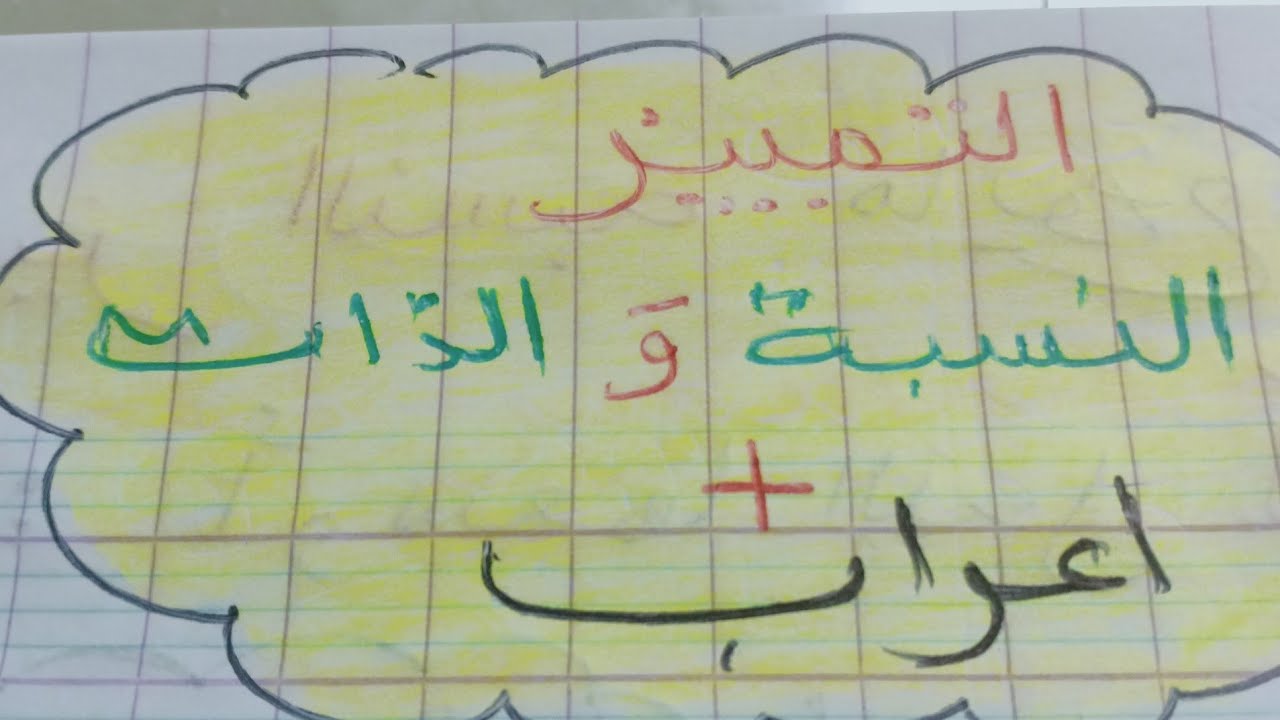 التمييز
النسبة وَ الذّات
+
اعراب